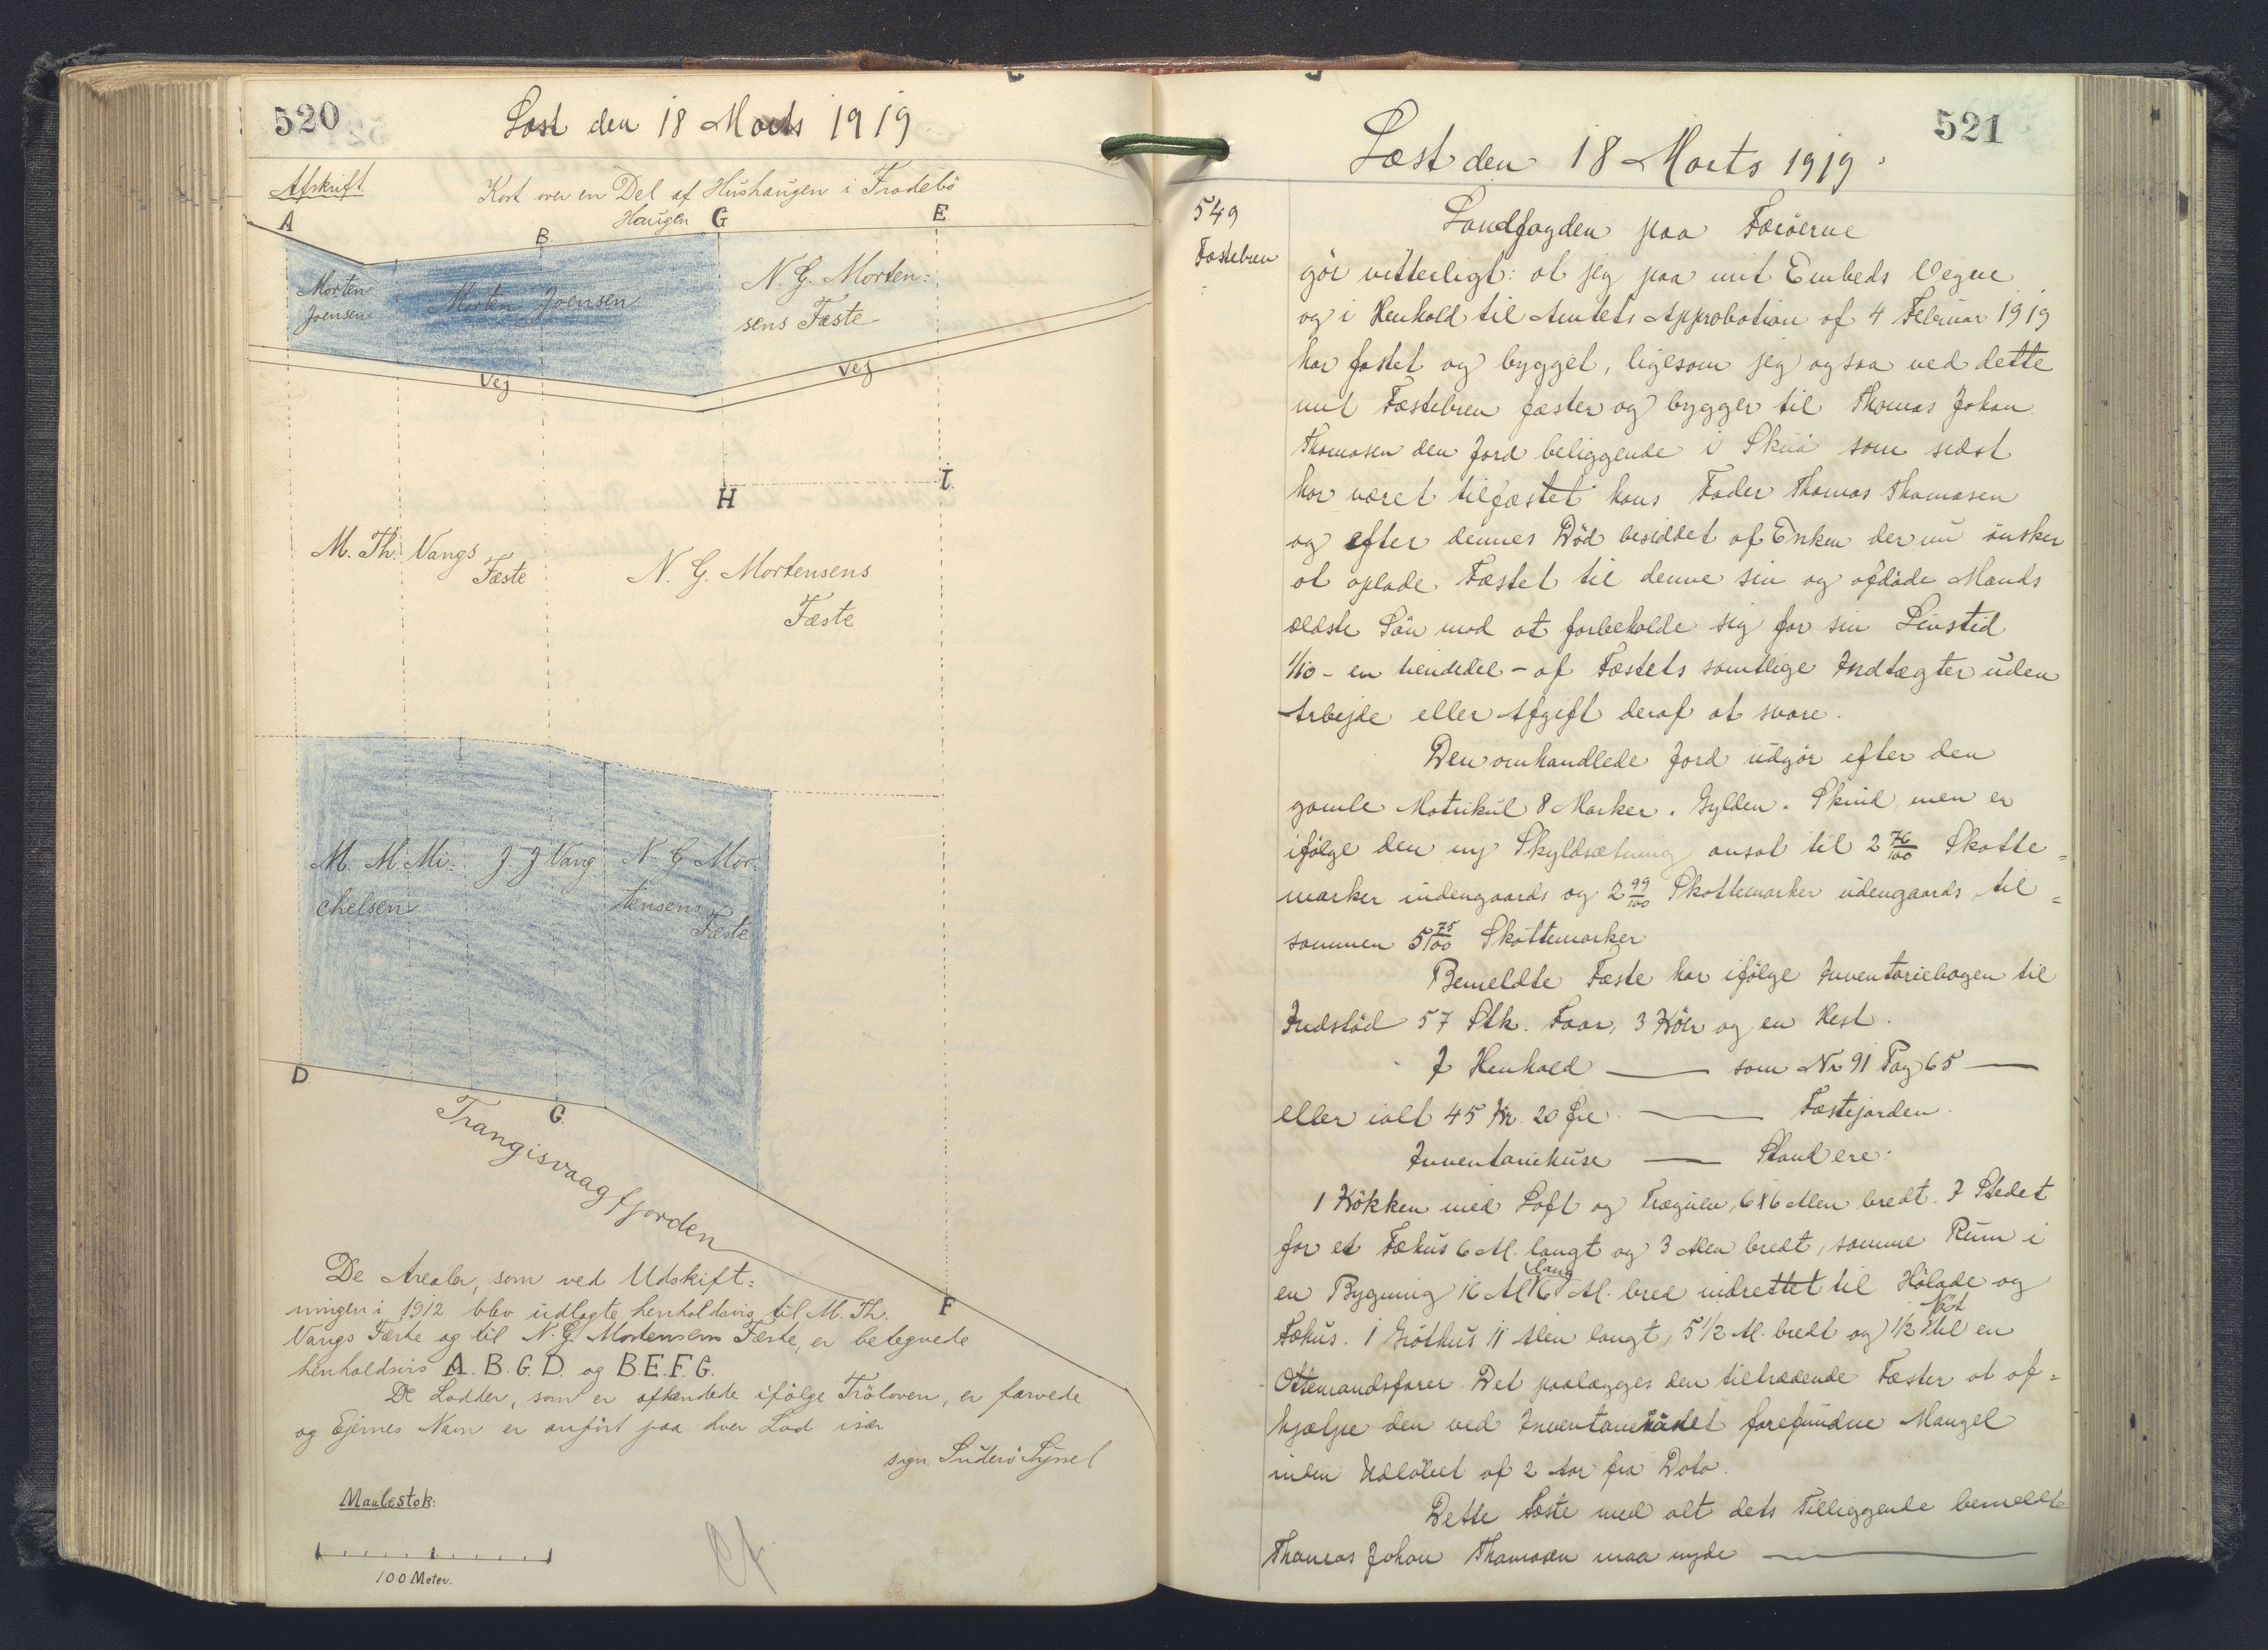 520
Læst den 18 Marts 1919
Afskrift
Kort over en Del af Hushaugen i Frodebö
Haugen
A
B.
G
E
Morten
Joensen
Morten Joensen
N. G. Morten=
sens Fæste
Vej
Vej
H
I.
M. Th. Vangs
Fæste
N. G. Mortensens
Fæste
M. M. Mi=
chelsen
J J Vang
N. G Mor=
tensens
Fæste
D
G.
Trangisvaagfjorden
F
De Arealer, som ved Udskift=
ningen i 1912 blev udlagte henholdsvis til M. Th.
Vangs Fæste og til N. G. Mortensens Fæste, er betegnede
henholdsvis A. B. G. D. og B.E.F.G.
De Lodder, som er afhændede ifölge Fröloven, er farvede
og Ejernes Navn er anfört paa hver Lod især
sign. Suderö Syssel
Maalestok:
100 Meter.
521
Læst den 18 Marts 1919.
549
Fæstebrev
Landfogden paa Færöerne
gör vitterligt: at jeg paa mit Embeds Vegne
og i Henhold til Amtets Approbation af 4 Februar 1919
har fæstet og bygget, ligesom jeg ogsaa ved dette
mit Fæstebrev fæster og bygger til Thomas Johan
Thomasen den Jord beliggende i Skúö som sidst
har været tilfæstet hans Fader Thomas Thomasen
og efter dennes Död besiddet af Enken der nu önsker
at oplade Fæstet til denne sin og afdöde Mands
ældste Sön mod at forbeholde sig for sin Livstid
1/10 - en tiendedel - af Fæstets samtlige Indtægter uden
Arbejde eller Afgift deraf at svare.
Den omhandlede Jord udgör efter den
gamle Matrikul 8 Marker . Gylden . Skind, men er
ifölge den ny Skyldsætning ansat til 2 76/100 Skatte=
marker indengaards og 2 99/100 Skattemarker udengaards til=
sammen 5 75/100 Skattemarker
Bemeldte Fæste har ifölge Inventariebogen til
Indstöd 57 Stk. Faar, 3 Köer og en Hest.
I Henhold — som Nr 91 Pag 65 —
eller ialt 45 Kr. 20 Øre — Fæstejorden.
Inventariehuse — Stand ere:
1 Kökken med Loft og Trægulv, 6x6 Alen bredt. I Stedet
for et Fæhus 6 Al. langt og 3 Alen bredt, samme Rum i
en Bygning 16 Al lang 6 Al. bred indrettet til Hölade og
Fæhus. 1 Gröthus 11 Alen langt, 5 1/2 Al. bredt og 1/2 Nøst til en
Ottemandsfarer. Det paalægges den tiltrædende Fæster at af=
hjælpe den ved Inventariesynet forefundne Mangel
inden Udlöbet af 2 Aar fra Dato.
Dette Fæste med alt dets Tilliggende bemeldte
Thomas Johan Thomasen maa nyde —